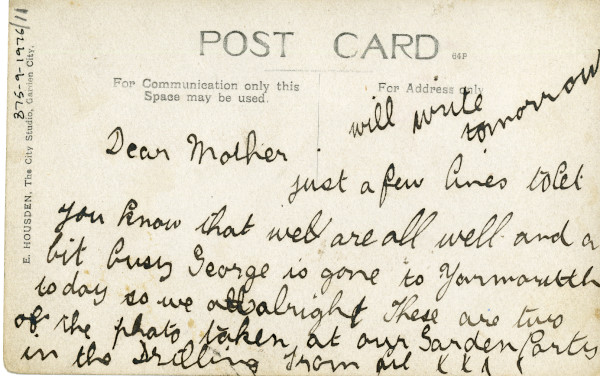 POST CARD
64P
For Communication only this
Space may be used.
For Address only
will write
tomorrow
Dear Mother
just a few lines to let
you know that we are all well and a
bit busy George is gone to Yarmouth
today so we all alright These are two
of the photo taken at our Garden Party
in the Drilling from xxx
875-9-1976/11
E. HOUSDEN, The City Studio, Garden City.